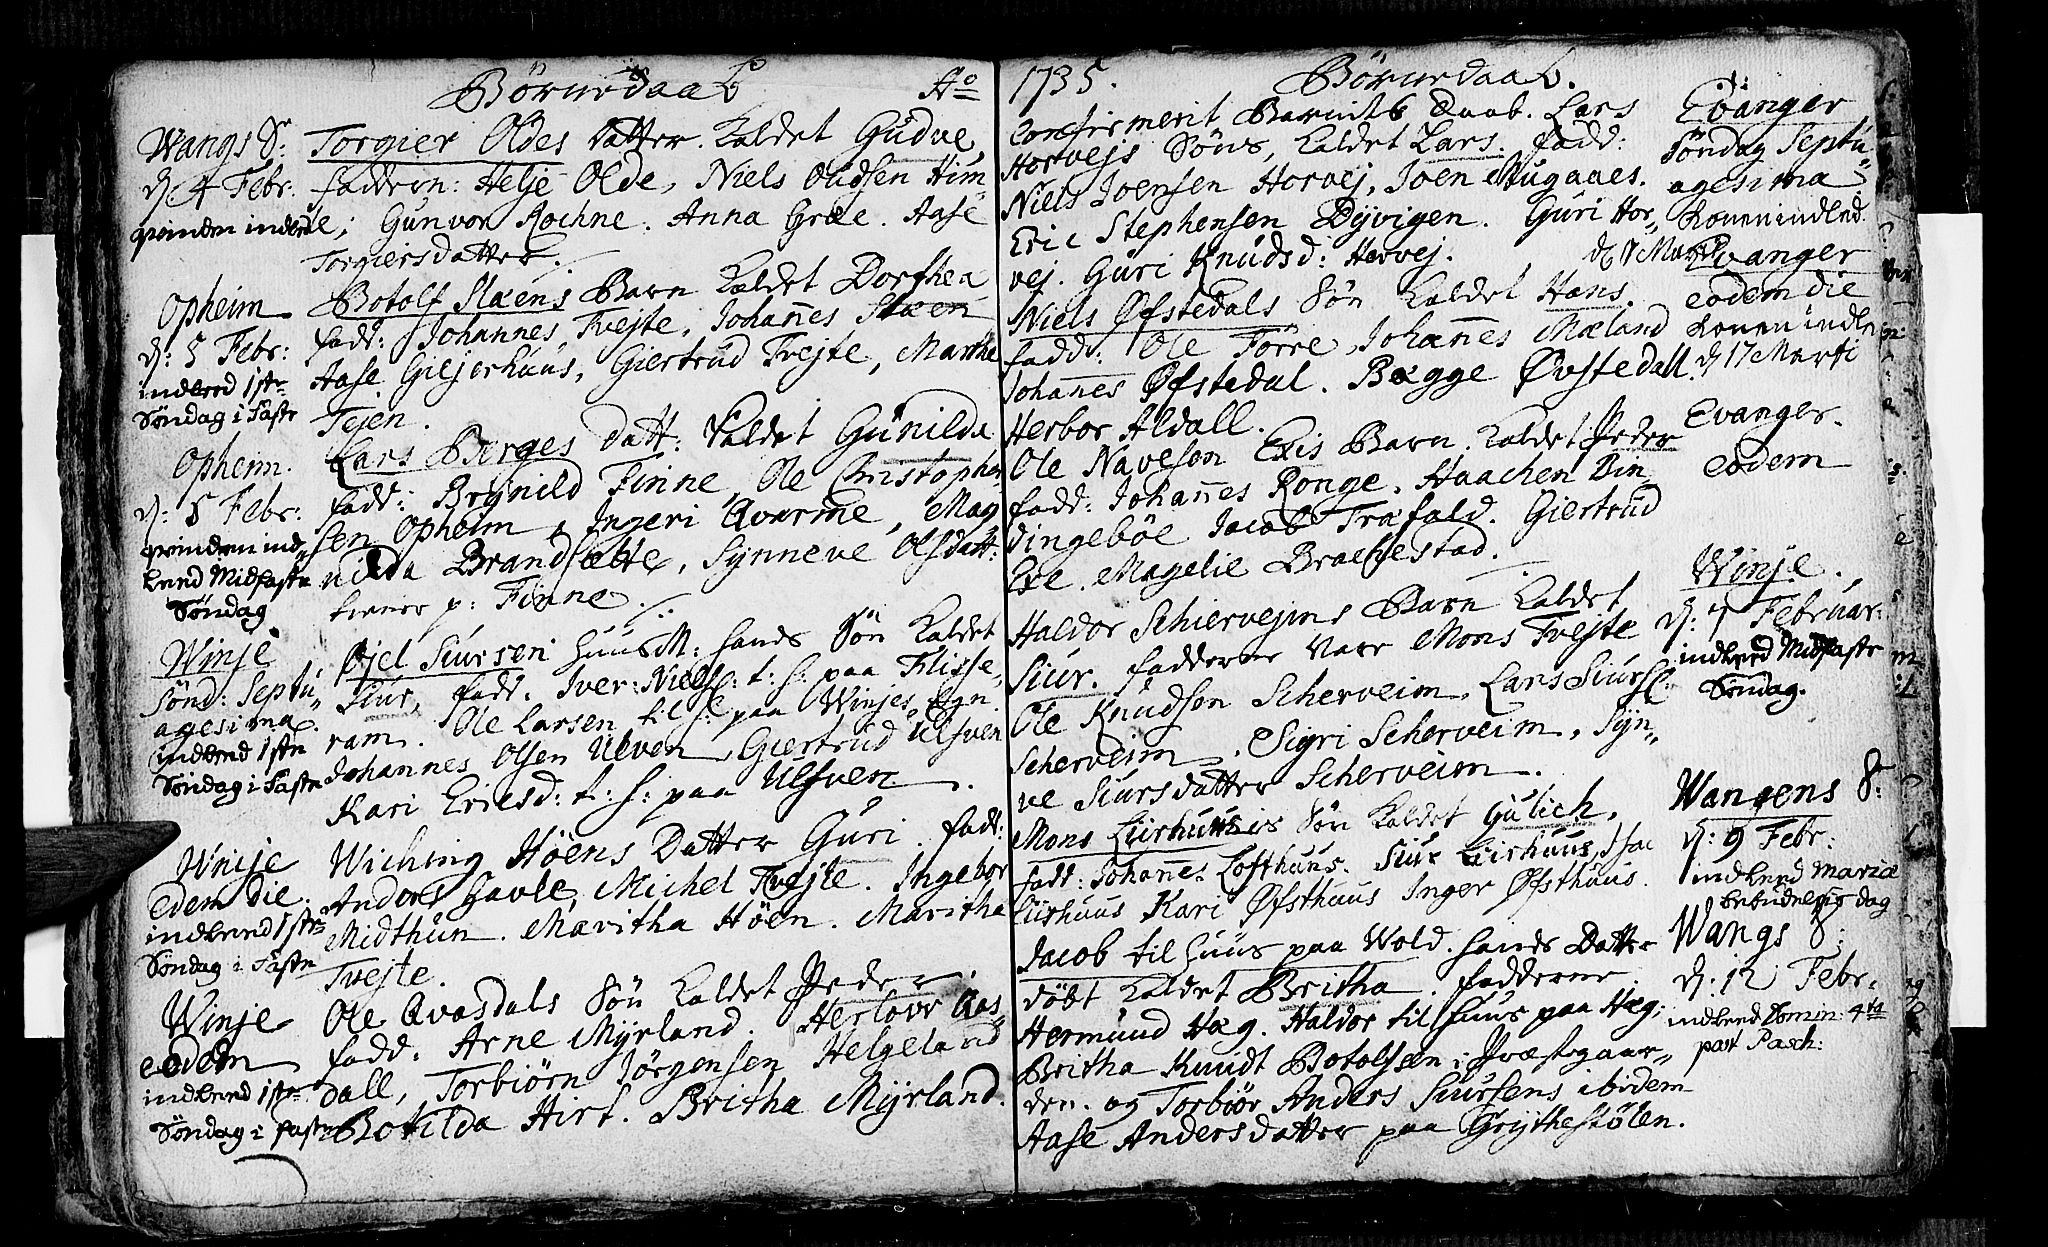 Börnedaab Aö
Wangs S:
d. 4 Febr:
qvinden indleed
Torgier Oldes datter kaldet Gudve,
faddern: Helje Olde, Niels Olidsen Him-
le; Gunvor Rochne. Anna Græe. Aase
Torgiersdatter.
Opheim
d: 5 Febr:
indleed 1ste
Söndag i Faste
Botolf Flæens Barn kaldet Dorthea
fadd: Johannes Tvejte, Johannes Flæen
Aase Giljerhuus, Giertrud Tvejte, Marthe
Tejen.
Opheim.
d: 5 Febr:
qvinden ind-
leed Midfaste
Söndag
Lars Berges datt: kaldet Gunilda
fadd: Brynild Finne, Ole Christopher
sen Opheim, Ingeri Qvarme, Mag
nilda Brandsætte, Synneve Olsdatt:
tiener p: Finne.
Winje
Sönd: Septu-
agesima.
indleed 1ste
Söndag i Faste
Öjel Siursen HuusM: hands Sön kaldet
Siur, fadd. Iver Niels: t: h: paa Flisse-
ram. Ole Larsen til h: paa Winjes Egn.
Johannes Olsen Ulven, Giertrud Ulfven
Kari Ericsd: t: h: paa Ulfven.
Winje
edem die.
indleed 1ste
Söndag i Faste
Wiching Höens Datter Guri. fadd:
Anders Havle, Michel Tvejte. Ingebor
Midthun. Maritha Höen. Maritha
Tvejte.
Winje
eodem
indleed 1ste
Söndag i faste
Ole Qvasdals Sön kaldet Peder
fadd: Arne Myrland. Herlovr Aas-
dall, Torbiörn Jörgensen Helgeland
Botilda Hirt. Britha Myrland.
1735. Börnedaab.
Confirmerit Barnets Daab. Lars
Horvejs Söns, kaldet Lars. fadd:
Niels Joensen Horvej, Joen Mugaaes.
Eric Stephensen Dyvigen. Guri Hor-
vej. Guri Knudsd: Horvej.
Evanger
Söndag Septu-
agesima
konen indled.
d 17 Martii
Niels Øfstedals Sön kaldet Hans.
fadd: Ole Törre, Johannes Mæland
Johannes Øfstedal. Bægge Øvstedall.
Herbor Aldall.
Evanger
eodem die
konen indle
d 17 Marti
Ole Naveson Exis Barn kaldet Peder
fadd: Johannes Ronge, Haachen Bin-
dingeböe Jacob Træfald. Giertrud
Exe. Magelie Brachestad.
Evanger.
eodem
Haldor Schiervejms Barn kaldet
Siur. fadderne vare Mons Tvejte
Ole Knudsen Scherveim, Lars Siurs:
Scherveim, Sigri Scherveim, Syn-
ve Siursdatter Scherveim.
Winje.
d: 7 Februar:
indleed Midfaste
Söndag.
Mons Liirhuuses Sön kaldet Gulich.
fadd: Johannes Lofthuus. Siur Liirhuus, Isac
Liirhuus Kari Øfsthuus Inger Øfsthuus.
Wangens S:
d: 9 Febr:
indleed Mariæ
bebudelsis dag
Jacob til huus paa Wold. hands Datter
döbt kaldet Britha. fadderne
Hermund Hæg. Haldor til huus paa Hæg:
Britha Knudt Botolfsen i Præstgaar-
den. og Torbiör Anders Siursens ibidem
Aase Andersdatter paa Grythestölen.
Wangs S:
d: 12 Febr.
indleed Domin: 4ta
post Pasch: